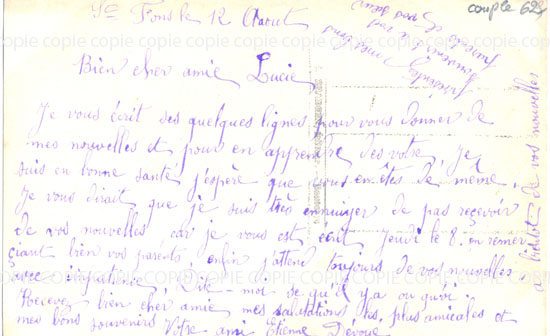 Yre Fons le 12 Aout
couple 624
Bien cher amie Lucie
Je vous écrit ses quelques lignes pour vous donner de
mes nouvelles et pour en apprendre des votre, Je
suis en bonne santé j'espère que vous en êtes de même,
Je vous dirait que je suis très ennuyer de pas reçevoir
de vos nouvelles car je vous est écrit Jeudi le 8. en remer
çiant bien vos parents, enfin j'attent toujours de vos nouvelles
avec impatience, Dit-moi se qu'il y a ou quoi
Recevez bien cher amie mes salutations les plus amicales et
mes bons souvenirs Votre ami Etienne Devoue
a bientôt de vos nouvelles